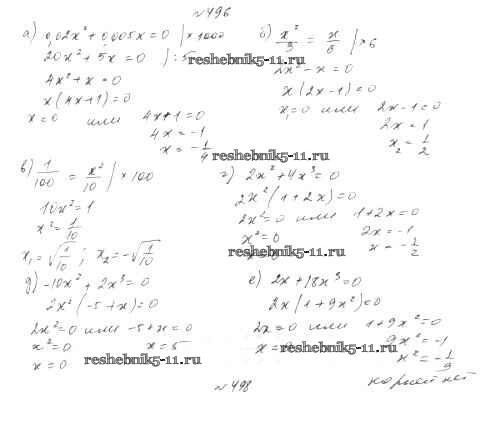 №496
а) 0,02x² + 0,005x = 0 | × 1000
20x² + 5x = 0 | : 5
4x² + x = 0
x(4x+1) = 0
x = 0 или 4x+1 = 0
4x = -1
x = -1/4
б) x²/3 = x/6 | × 6
2x² - x = 0
x(2x-1) = 0
x₁ = 0 или 2x-1 = 0
2x = 1
x₂ = 1/2
в) 1/100 = x²/10 | × 100
10x² = 1
x² = 1/10
x₁ = √1/10 ; x₂ = -√1/10
г) 2x² + 4x³ = 0
2x²(1+2x) = 0
2x² = 0 или 1+2x = 0
x² = 0 2x = -1
x = -1/2
д) -10x² + 2x³ = 0
2x²(-5+x) = 0
2x² = 0 или -5+x = 0
x² = 0 x = 5
x = 0
е) 2x + 18x³ = 0
2x(1+9x²) = 0
2x = 0 или 1+9x² = 0
x = 0 9x² = -1
x² = -1/9
корней нет
№498
reshebnik5-11.ru
reshebnik5-11.ru
reshebnik5-11.ru
reshebnik5-11.ru
reshebnik5-11.ru